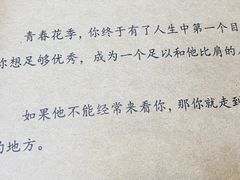 青春花季，你终于有了人生中第一个目
你想足够优秀，成为一个足以和他比肩的
如果他不能经常来看你，那你就走到
的地方。